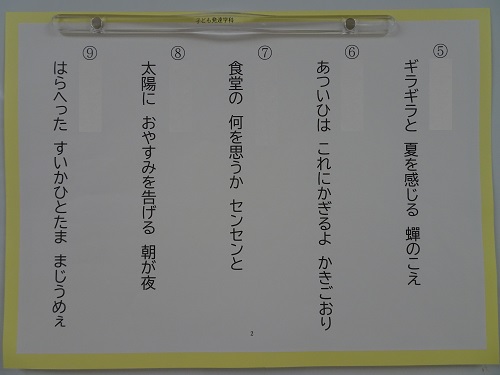 子ども発達学科
⑤
ギラギラと 夏を感じる 蟬のこえ
⑥
あついひは これにかぎるよ かきごおり
⑦
食堂の 何を思うか センセンと
⑧
太陽に おやすみを告げる 朝が夜
⑨
はらへった すいかひとたま まじうめぇ
2